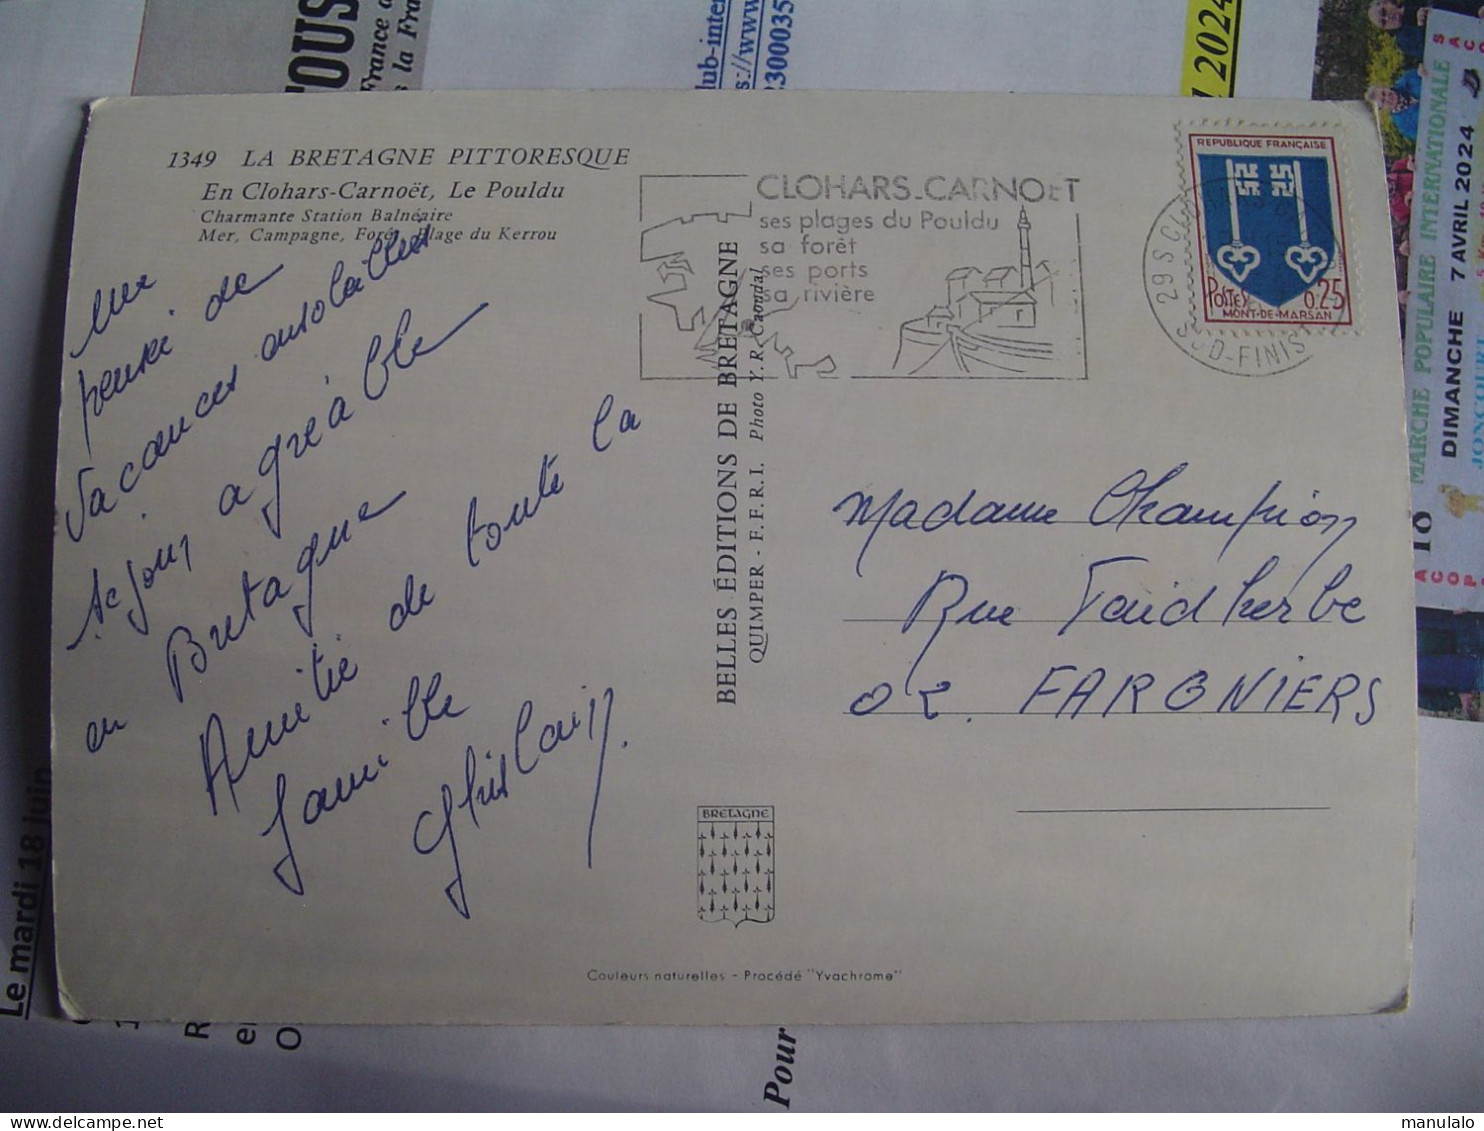 TOUS
France
s la Fra
lub-inter
s://www
23000035
1349 LA BRETAGNE PITTORESQUE
En Clohars-Carnoët, Le Pouldu
Charmante Station Balnéaire
Mer, Campagne, Forêt, Plage du Kerrou
CLOHARS-CARNOËT
ses plages du Pouldu
sa forêt
ses ports
sa rivière
REPUBLIQUE FRANÇAISE
POSTES 0.25
MONT-DE-MARSAN
29 S CL
SUD-FINIS
une
pensée de
vacances ensoleillées
séjour agréable
en Bretagne
Amitié de toute la
famille
Ghislain.
BELLES ÉDITIONS DE BRETAGNE
QUIMPER - F.F.R.I. Photo Y.R. Caoudal
Madame Champion
Rue Faidherbe
02. FARGNIERS
BRETAGNE
Couleurs naturelles - Procédé "Yvachrome"
Le mardi 18 juin
Pour
2024
MARCHE POPULAIRE INTERNATIONALE
DIMANCHE 7 AVRIL 2024
manulalo